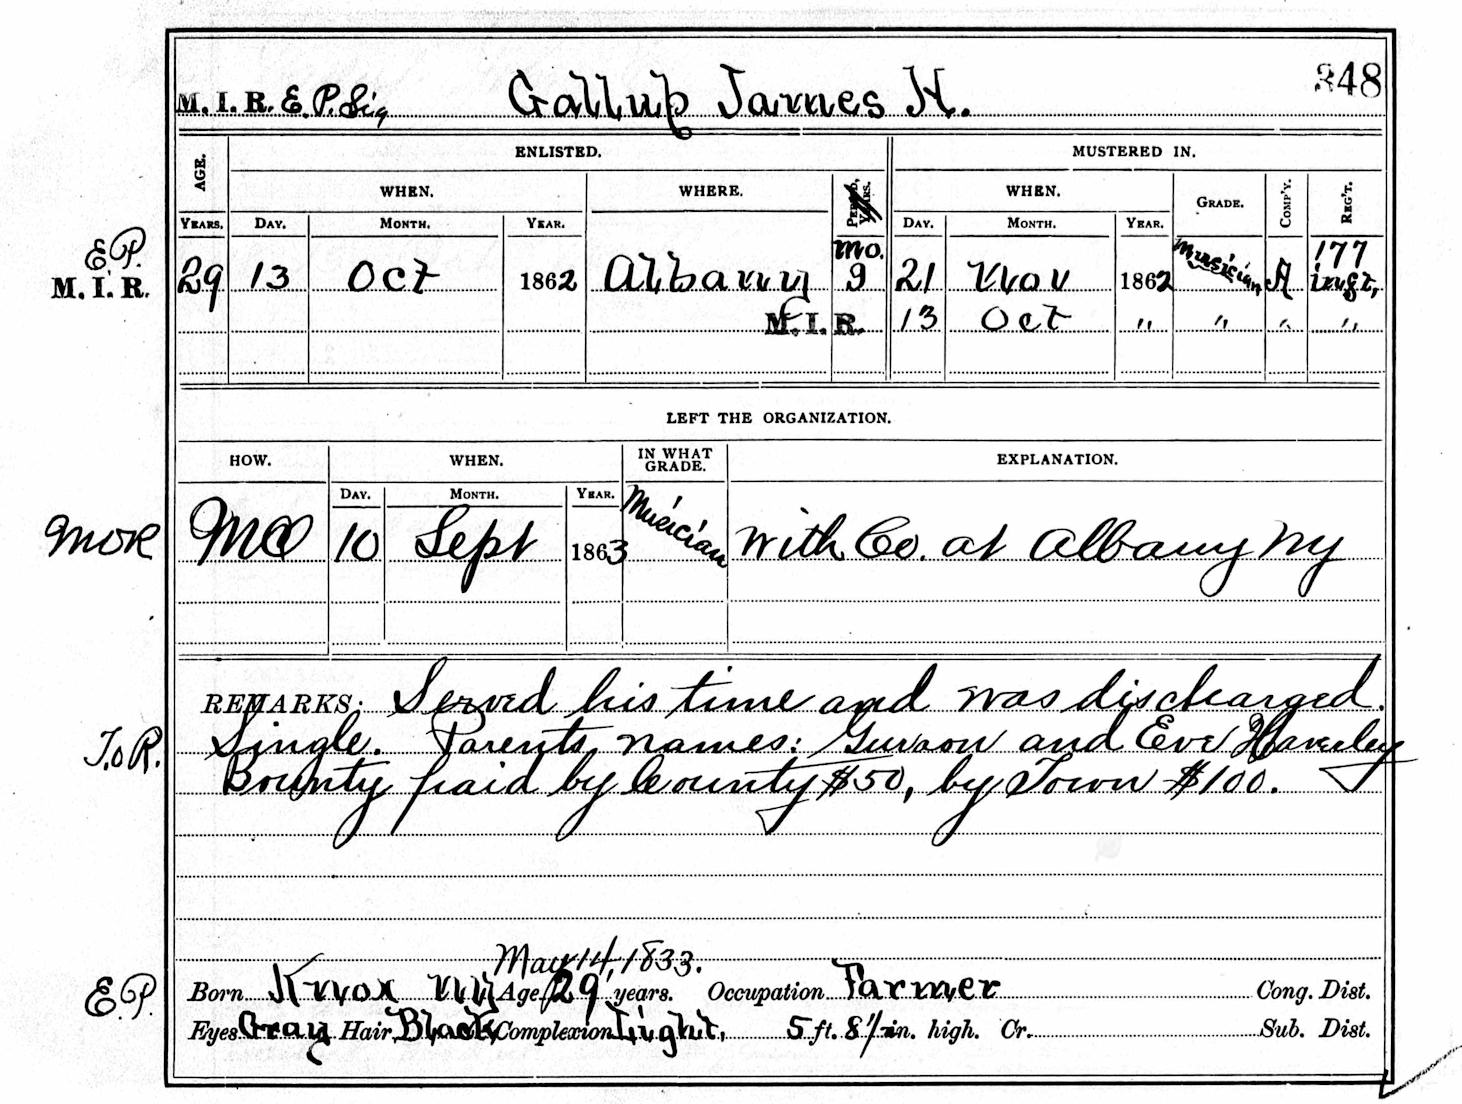 M. I. R. E. P. Sig Gallup James H. 348
AGE. ENLISTED. MUSTERED IN.
WHEN. WHERE. PERIOD, YEARS. WHEN. GRADE. COMP'Y. REG'T.
YEARS. DAY. MONTH. YEAR. DAY. MONTH. YEAR.
E.P. mo. 177
M. I. R. 29 13 Oct 1862 Albany 9 21 Nov 1862 Musician A inft,
M. I. R. 13 Oct " " " "
LEFT THE ORGANIZATION.
HOW. WHEN. IN WHAT GRADE. EXPLANATION.
DAY. MONTH. YEAR.
MOR MO 10 Sept 1863 Musician With Co. at Albany NY
REMARKS: Served his time and was discharged.
T.o R. Single. Parents names: Gurdon and Eve Haverley
Bounty paid by County $50, by Town $100.
May 14, 1833.
E.P. Born Knox NY Age 29 years. Occupation Farmer Cong. Dist.
Eyes Gray Hair Black Complexion Light, 5 ft. 8 1/2 in. high. Cr. Sub. Dist.